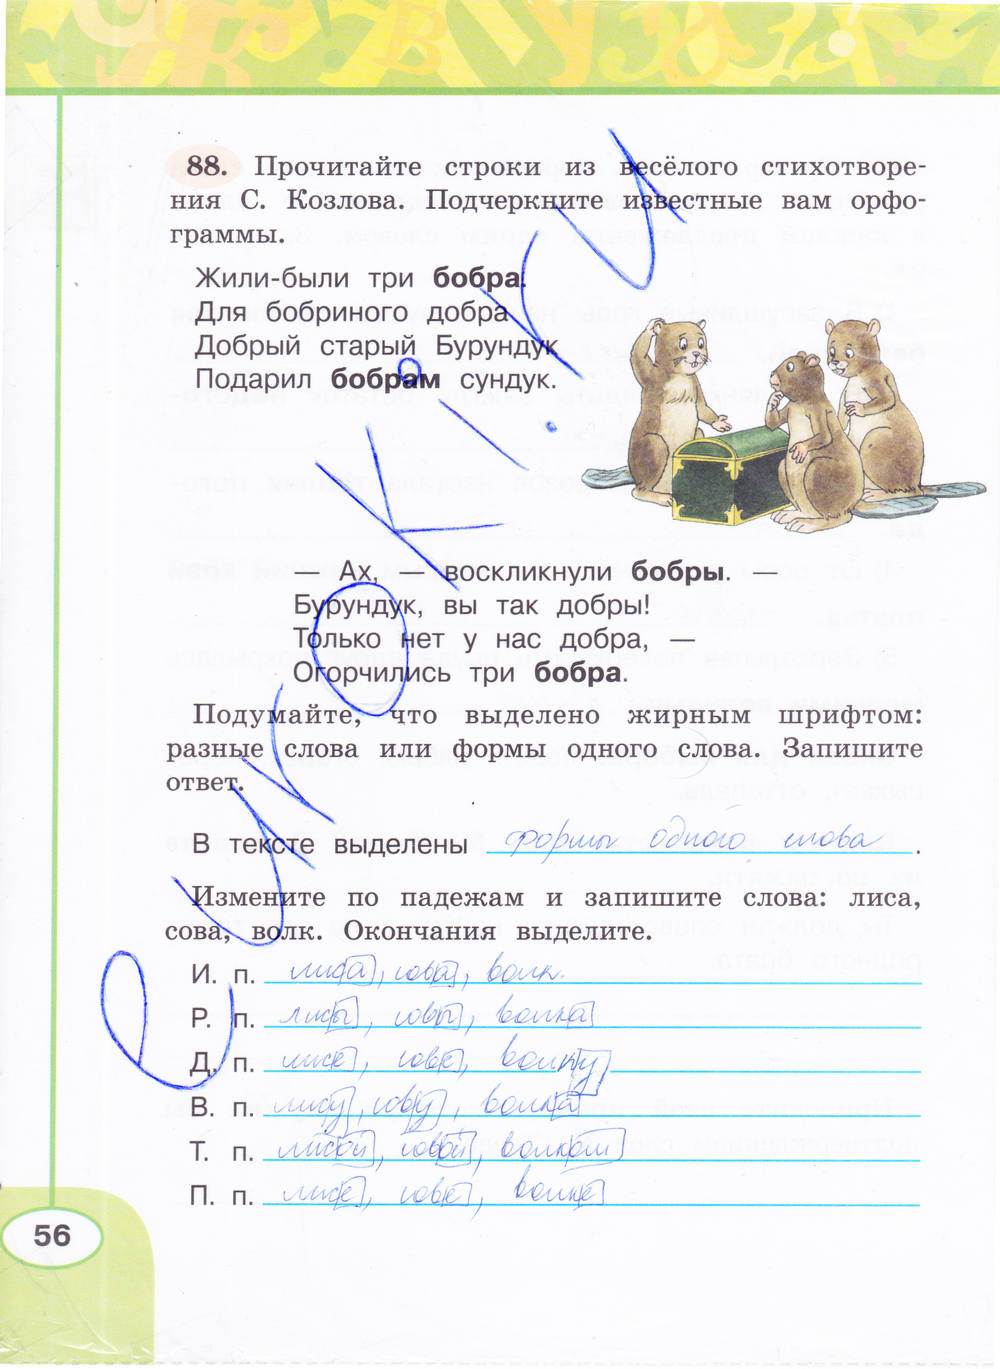 88. Прочитайте строки из весёлого стихотворе-
ния С. Козлова. Подчеркните известные вам орфо-
граммы.
Жили-были три бобра.
Для бобриного добра
Добрый старый Бурундук
Подарил бобрам сундук.
— Ах, — воскликнули бобры. —
Бурундук, вы так добры!
Только нет у нас добра, —
Огорчились три бобра.
Подумайте, что выделено жирным шрифтом:
разные слова или формы одного слова. Запишите
ответ.
В тексте выделены формы одного слова.
Измените по падежам и запишите слова: лиса,
сова, волк. Окончания выделите.
И. п. лиса, сова, волк.
Р. п. лисы, совы, волка
Д. п. лисе, сове, волку
В. п. лису, сову, волка
Т. п. лисой, совой, волком
П. п. лисе, сове, волке
56
eurokI.ru